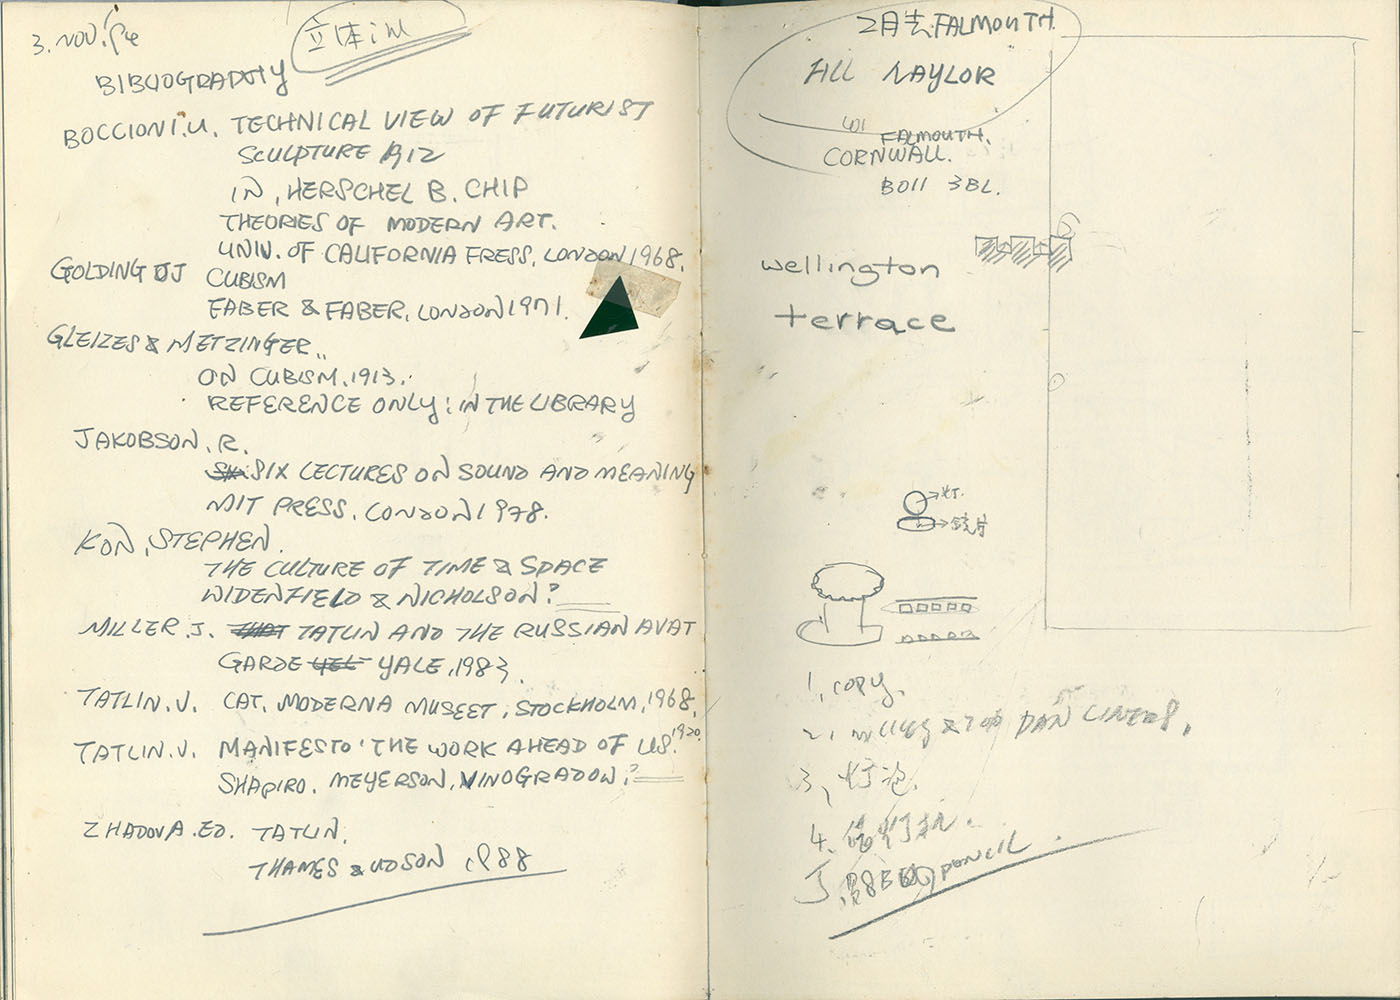 3. NOV. 94
立体
BIBLIOGRAPHY
BOCCIONI.U. TECHNICAL VIEW OF FUTURIST
SCULPTURE 1912
IN, HERSCHEL B. CHIP
THEORIES OF MODERN ART.
UNIV. OF CALIFORNIA PRESS, LONDON 1968.
GOLDING J CUBISM
FABER & FABER, LONDON 1971.
GLEIZES & METZINGER..
ON CUBISM, 1913.
REFERENCE ONLY: IN THE LIBRARY
JAKOBSON. R.
SIX LECTURES ON SOUND AND MEANING
MIT PRESS, LONDON 1978.
KON, STEPHEN.
THE CULTURE OF TIME & SPACE
WIDENFIELD & NICHOLSON?
MILLER. J. TATLIN AND THE RUSSIAN AVAT
GARDE YALE, 1983.
TATLIN. V. CAT. MODERNA MUSEET, STOCKHOLM, 1968.
TATLIN. V. MANIFESTO 'THE WORK AHEAD OF US. 1920
SHAPIRO. MEYERSON, VINOGRADOW?
ZHADOVA. ED. TATLIN.
THAMES & UDSON 1988
2月去 FALMOUTH.
NAYLOR
FALMOUTH.
CORNWALL.
B011 3BL.
wellington
terrace
灯.
镜片
1, copy.
2,
3、灯泡.
4.
PENCIL